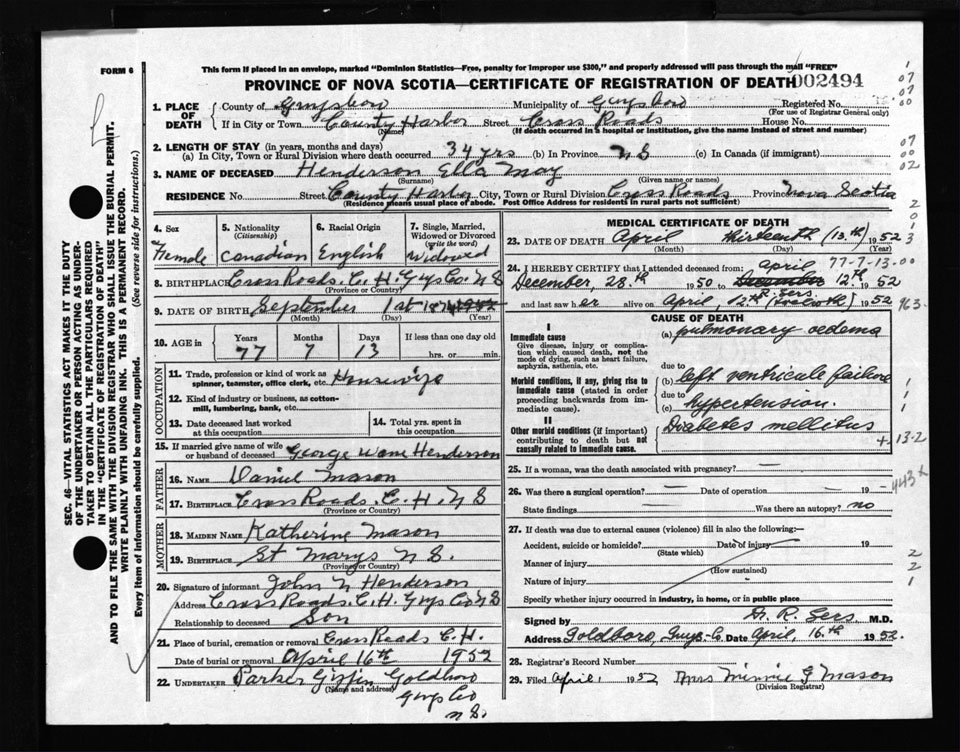 This form if placed in an envelope, marked "Dominion Statistics—Free, penalty for improper use $300," and properly addressed will pass through the mail "FREE"
FORM 6
PROVINCE OF NOVA SCOTIA—CERTIFICATE OF REGISTRATION OF DEATH 002494
SEC. 46—VITAL STATISTICS ACT MAKES IT THE DUTY
OF THE UNDERTAKER OR PERSON ACTING AS UNDER-
TAKER TO OBTAIN ALL THE PARTICULARS REQUIRED
IN THE "CERTIFICATE OF REGISTRATION OF DEATH"
AND TO FILE THE SAME WITH THE DIVISION REGISTRAR WHO SHALL ISSUE THE BURIAL PERMIT.
WRITE PLAINLY WITH UNFADING INK. THIS IS A PERMANENT RECORD.
Every item of information should be carefully supplied. (See reverse side for instructions.)
1. PLACE OF DEATH County of Guysboro Municipality of Guysboro Registered No.
(For use of Registrar General only)
If in City or Town County Harbor Street Cross Roads House No.
(Name) (If death occurred in a hospital or institution, give the name instead of street and number)
2. LENGTH OF STAY (in years, months and days)
(a) In City, Town or Rural Division where death occurred 34 yrs (b) In Province N S (c) In Canada (if immigrant)
3. NAME OF DECEASED Henderson Ella May
(Surname) (Given name or names)
RESIDENCE No. Street County Harbor City, Town or Rural Division Cross Roads Province Nova Scotia
(Residence means usual place of abode. Post Office Address for residents in rural parts not sufficient)
4. Sex 5. Nationality (Citizenship) 6. Racial Origin 7. Single, Married, Widowed or Divorced (write the word)
Female Canadian English Widowed
8. BIRTHPLACE Cross Roads. C. H. Guys Co. N S
(Province or Country)
9. DATE OF BIRTH September 1st 1874 1952
(Month) (Day) (Year)
10. AGE in Years Months Days If less than one day
77 7 13 hrs. or min.
OCCUPATION
11. Trade, profession or kind of work as
spinner, teamster, office clerk, etc. Housewife
12. Kind of industry or business, as cotton-
mill, lumbering, bank, etc.
13. Date deceased last worked at this occupation
14. Total yrs. spent in this occupation
15. If married give name of wife
or husband of deceased George Henderson
FATHER
16. NAME Daniel Mason
17. BIRTHPLACE Cross Roads. C. H. N S
(Province or Country)
MOTHER
18. MAIDEN NAME Katherine Mason
19. BIRTHPLACE St Marys N S.
(Province or Country)
20. Signature of informant John N Henderson
Address Cross Roads. C. H. Guys Co N S
Relationship to deceased Son
21. Place of burial, cremation or removal Cross Roads C. H.
Date of burial or removal April 16th 1952
22. UNDERTAKER Parker Giffin Goldboro
(Name and address) Guys Co
N S.
MEDICAL CERTIFICATE OF DEATH
23. DATE OF DEATH April thirteenth (13th) 1952
(Month) (Day) (Year)
24. I HEREBY CERTIFY that I attended deceased from: April 77-7-13-00
December, 28th 1950 to December 12th. 1952
and last saw her alive on April, 12th 1952 963-
CAUSE OF DEATH
I
Immediate cause
Give disease, injury or complication which caused death, not the mode of dying, such as heart failure, asphyxia, asthenia, etc.
(a) pulmonary oedema
due to
Morbid conditions, if any, giving rise to immediate cause (stated in order proceeding backwards from immediate cause).
(b) left ventricule failure
due to
(c) hypertension.
II
Other morbid conditions (if important) contributing to death but not causally related to immediate cause.
Diabetes mellitus
+13-2
25. If a woman, was the death associated with pregnancy? —
443+
26. Was there a surgical operation? — Date of operation — 19 —
State findings — Was there an autopsy? no
27. If death was due to external causes (violence) fill in also the following:—
Accident, suicide or homicide? Date of injury 19
(State which)
Manner of injury
(How sustained)
Nature of injury
Specify whether injury occurred in industry, in home, or in public place
Signed by M.D.
Address Goldboro, Guys. Co. Date April, 16th 1952.
28. Registrar's Record Number
29. Filed April, 1952 Mrs Minnie G Mason
(Division Registrar)